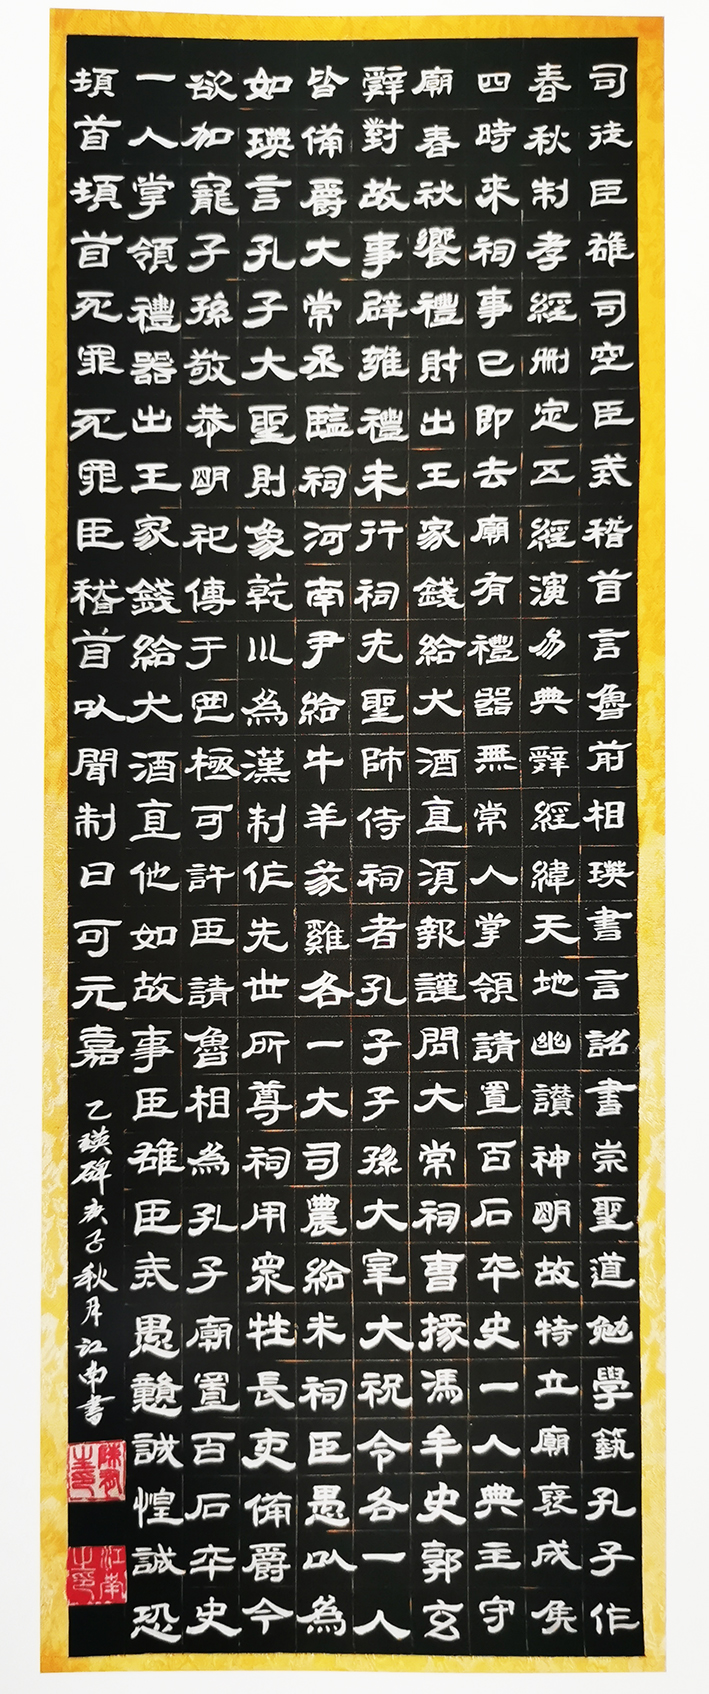 司徒臣雄司空臣戒稽首言魯前相瑛書言詔書崇聖道勉學藝孔子作
春秋制孝經刪定五經演易典辭經緯天地幽讚神明故特立廟襃成侯
四時來祠事已即去廟有禮器無常人掌領請置百石卒史一人典主守
廟春秋饗禮財出王家錢給大酒直須報謹問大常祠曹掾馮牟史郭玄
辭對故事辟雍禮未行祠先聖師侍祠者孔子子孫大宰大祝令各一人
皆備爵大常丞監祠河南尹給牛羊豕雞各一大司農給米祠臣愚以為
如瑛言孔子大聖則象乾川為漢制作先世所尊祠用眾牲長吏備爵今
欲加寵子孫敬恭明祀傳于罔極可許臣請魯相為孔子廟置百石卒史
一人掌領禮器出王家錢給犬酒直他如故事臣雄臣戒愚戇誠惶誠恐
頓首頓首死罪死罪臣稽首以聞制曰可元嘉
乙瑛碑庚子秋月江南書
江南之印